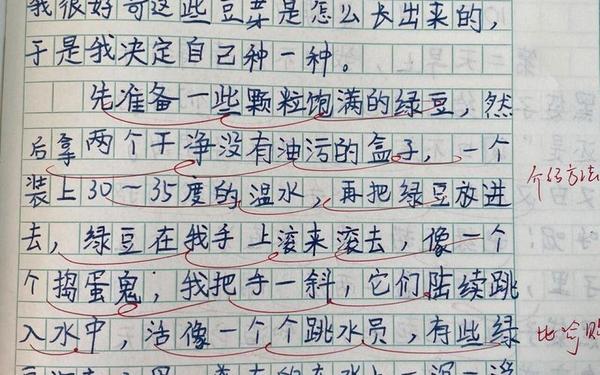 我很好奇这些豆芽是怎么长出来的，
于是我决定自己种一种。
先准备一些颗粒饱满的绿豆，然
后拿两个干净没有油污的盒子，一个
装上30~35度的温水，再把绿豆放进
去，绿豆在我手上滚来滚去，像一个
个捣蛋鬼，我把手一斜，它们陆续跳
入水中，活像一个个跳水员，有些绿
介绍方法